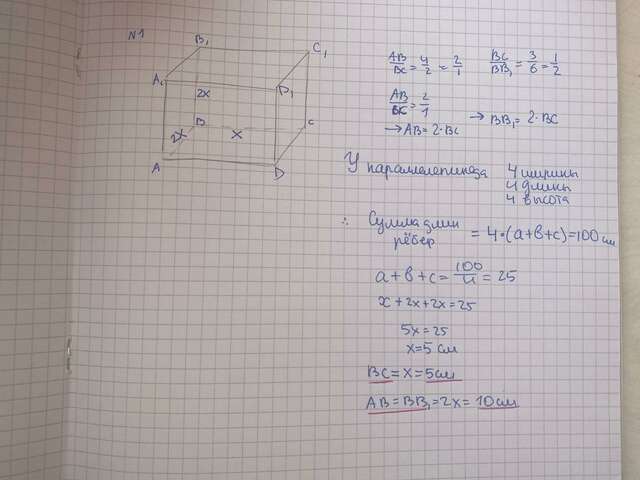 N1
B₁
C₁
A₁
D₁
2x
B
2x
x
C
A
D
AB/BC = 4/2 = 2/1
BC/BB₁ = 3/6 = 1/2
AB/BC = 2/1
→ AB = 2·BC
→ BB₁ = 2·BC
У параллелепипеда 4 ширины
4 длины
4 высота
∴ Сумма длин рёбер = 4·(a+b+c)=100см
a+b+c = 100/4 = 25
x+2x+2x=25
5x=25
x=5 см
BC=x=5см
AB=BB₁=2x=10см